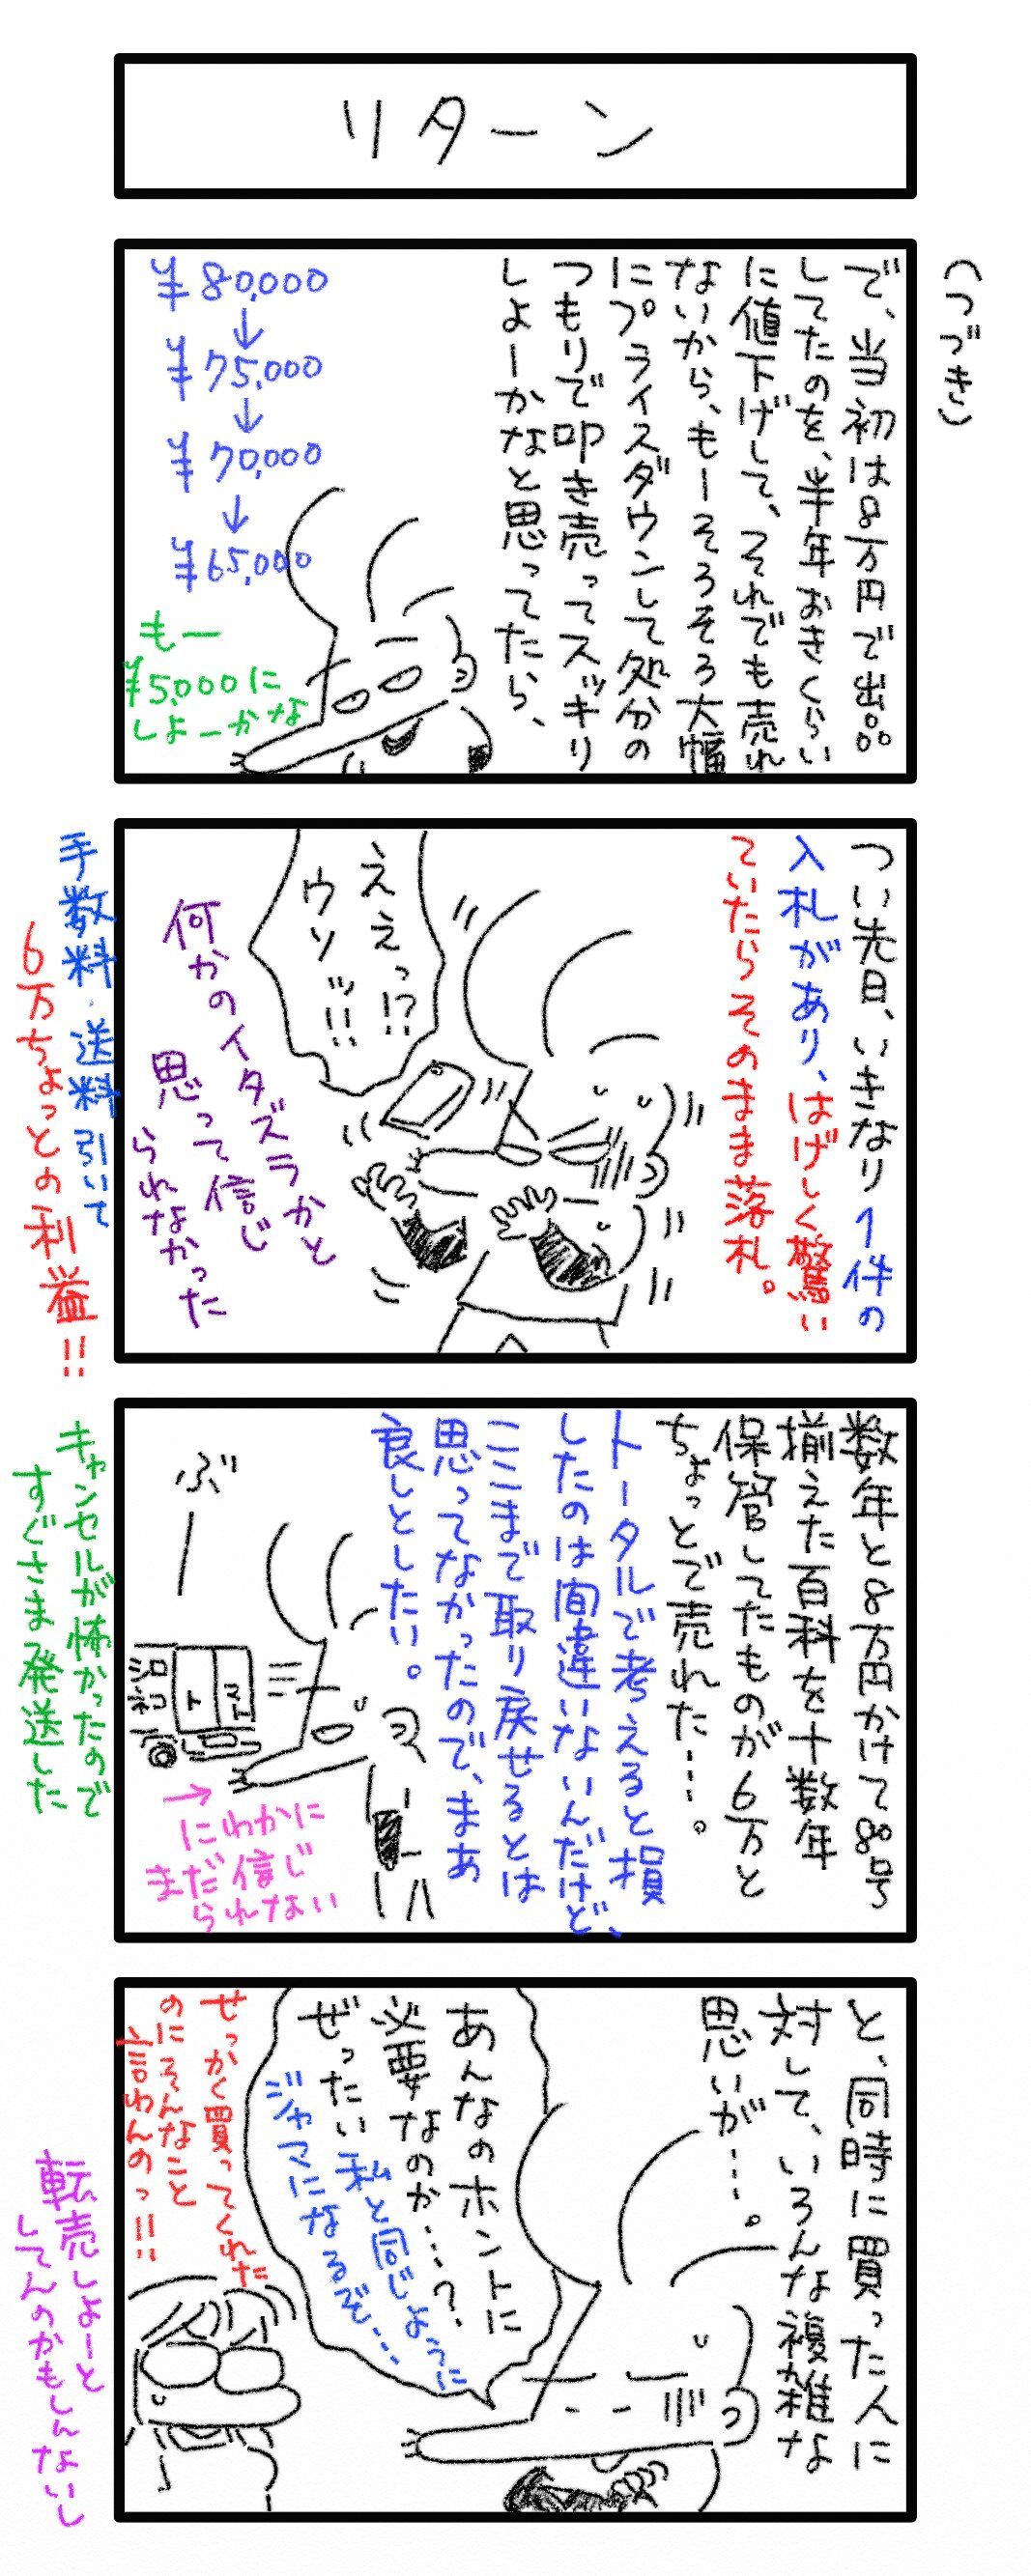 リターン
(つづき)
で、当初は8万円で出品
してたのを、半年おきくらい
に値下げして、それでも売れ
ないから、もーそろそろ大幅
にプライスダウンして処分の
つもりで叩き売ってスッキリ
しよーかなと思ってたら、
¥80,000
↓
¥75,000
↓
¥70,000
↓
¥65,000
もー
¥5,000に
しよーかな
つい先日、いきなり1件の
入札があり、はげしく驚い
ていたらそのまま落札。
ええっ!?
ウソッ!!
何かのイタズラかと
思って信じ
られなかった
手数料・送料引いて
6万ちょっとの利益!!
数年と8万円かけて80号
揃えた百科を十数年
保管してたものが6万と
ちょっとで売れた…。
トータルで考えると損
したのは間違いないんだけど、
ここまで取り戻せるとは
思ってなかったので、まあ
良しとしたい。
ぶー
→
にわかに
まだ信じ
られない
キャンセルが怖かったので
すぐさま発送した
と、同時に買った人に
対して、いろんな複雑な
思いが…。
あんなのホントに
必要なのか…?
ぜったい私と同じように
ジャマになるぞ…
せっかく買ってくれた
のにそんなこと
言わんのっ!!
転売しよーと
してんのかもしんないし